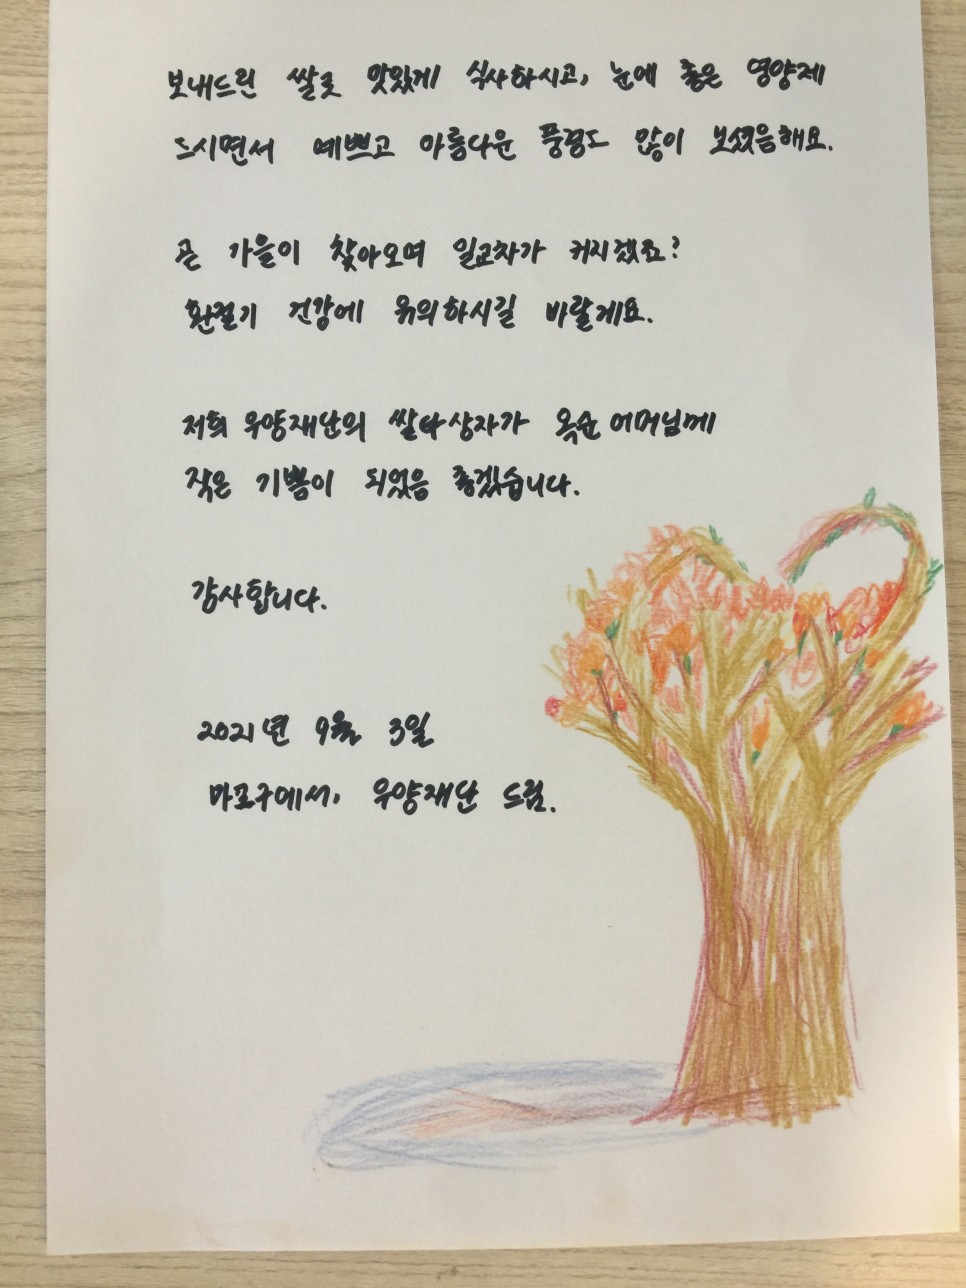 보내드린 쌀로 맛있게 식사하시고, 눈에 좋은 영양제
드시면서 예쁘고 아름다운 풍경도 많이 보셨음해요.
곧 가을이 찾아오며 일교차가 커지겠죠?
환절기 건강에 유의하시길 바랄게요.
저희 우양재단의 쌀다상자가 옥순 어머님께
작은 기쁨이 되었음 좋겠습니다.
감사합니다.
2021년 9월 3일
마포구에서, 우양재단 드림.